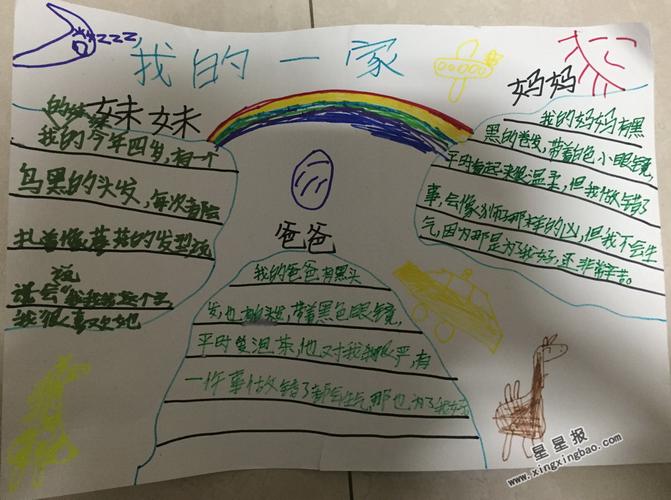 zzzz
我的一家
妹妹
我的妹妹今年四岁,有一个
乌黑的头发,每次都会
扎着像蘑菇的发型玩
说会
我很喜欢她
爸爸
我的爸爸有黑头
发,也,带着黑色眼镜,
平时爱泡茶,他对我很严,有
一件事做错了都会生气,那也为了我好
妈妈
我的妈妈有黑
黑的卷发,带着白色小眼镜,
平时看起来很温柔,但我做错了
事,会像狮子那样的凶,但我不会生
气,因为那是为了我好,还非常辛苦。
星星报
www.xingxingbao.com